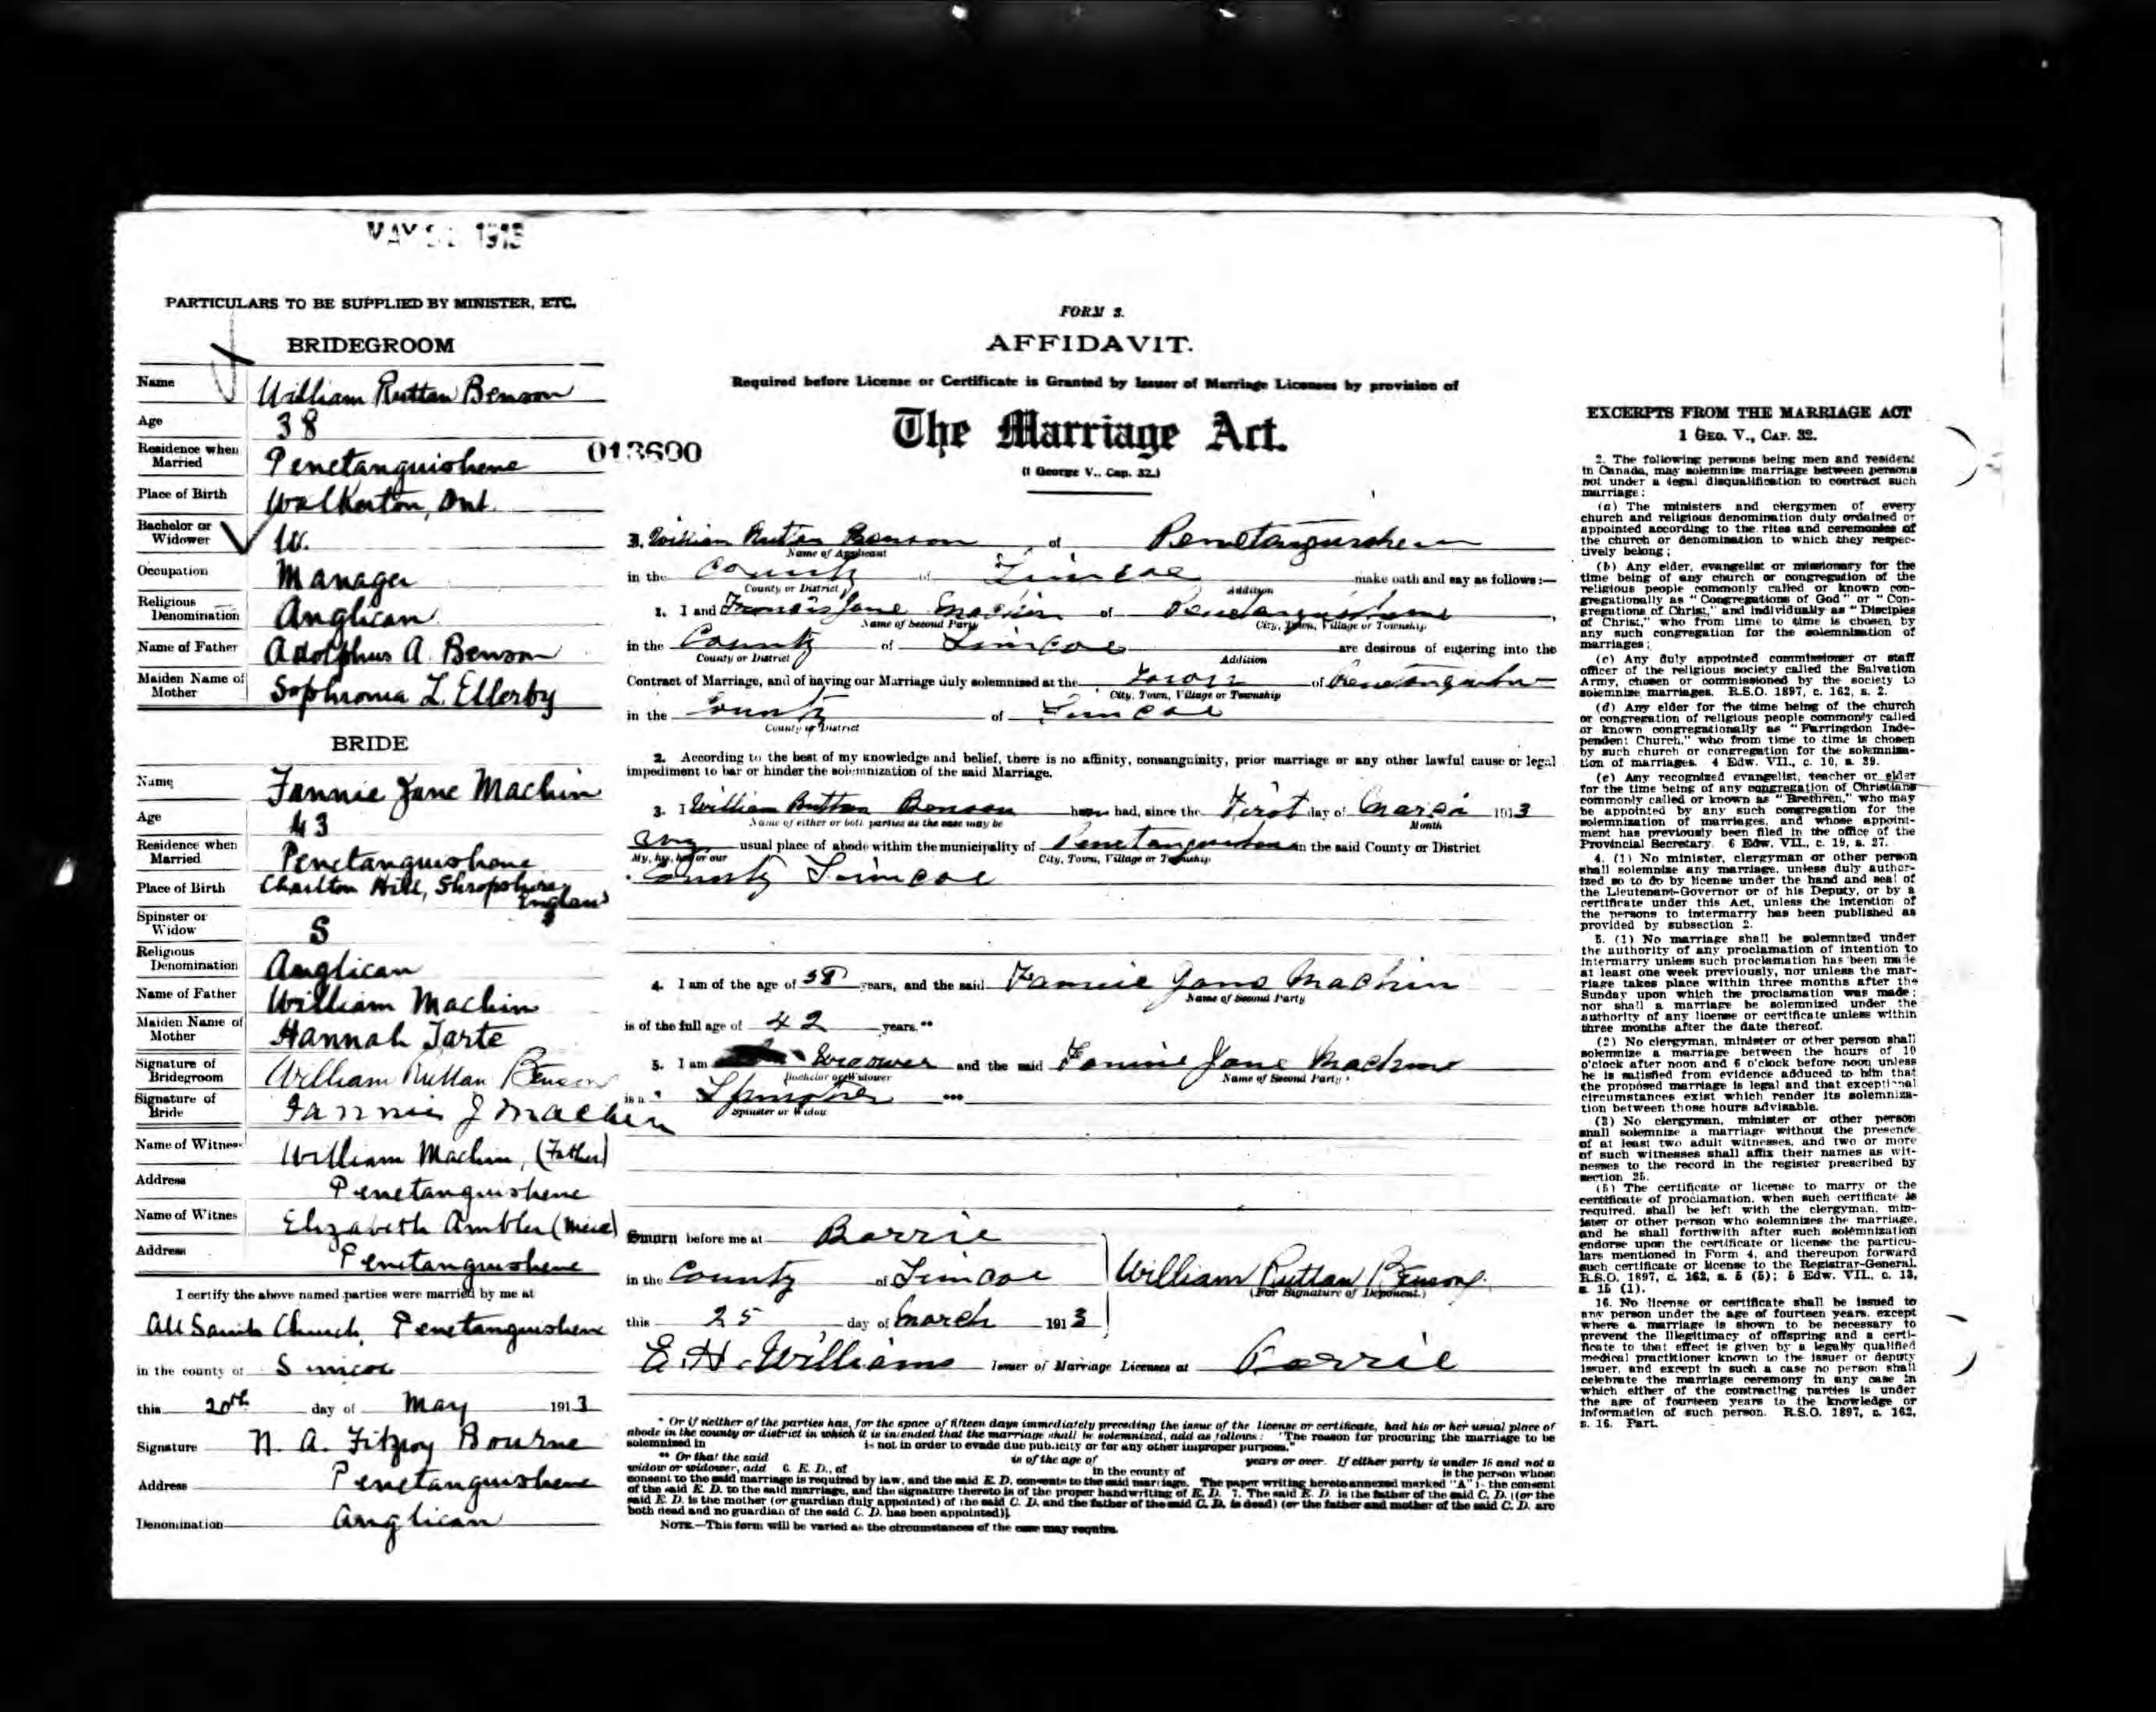 MAY 1913
PARTICULARS TO BE SUPPLIED BY MINISTER, ETC.
BRIDEGROOM
Name William Ruttan Benson
Age 38
Residence when Married Penetanguishene
Place of Birth Walkerton, Ont.
Bachelor or Widower W.
Occupation Manager
Religious Denomination Anglican
Name of Father Adolphus A. Benson
Maiden Name of Mother Sophronia L. Ellerby
BRIDE
Name Fannie Jane Machin
Age 43
Residence when Married Penetanguishene
Place of Birth Charlton Hill, Shropshire, England
Spinster or Widow S
Religious Denomination Anglican
Name of Father William Machin
Maiden Name of Mother Hannah Tarte
Signature of Bridegroom William Ruttan Benson
Signature of Bride Fannie J Machin
Name of Witness William Machin, (Father)
Address Penetanguishene
Name of Witnes Elizabeth Ambler (Niece)
Address Penetanguishene
I certify the above named parties were married by me at
All Saints Church, Penetanguishene
in the county of Simcoe
this 20th day of May 1913
Signature N. A. Fitzroy Bourne
Address Penetanguishene
Denomination Anglican
013600
FORM 3.
AFFIDAVIT.
Required before License or Certificate is Granted by Issuer of Marriage Licenses by provision of
The Marriage Act.
(1 George V., Cap. 32.)
I, William Ruttan Benson of Penetanguishene
Name of Applicant
in the County of Simcoe make oath and say as follows:—
County or District Addition
1. I and Francis Jane Machin of Penetanguishene
Name of Second Party City, Town, Village or Township
in the County of Simcoe are desirous of entering into the
County or District Addition
Contract of Marriage, and of having our Marriage duly solemnized at the Town of Penetanguishene
City, Town, Village or Township
in the County of Simcoe
County or District
2. According to the best of my knowledge and belief, there is no affinity, consanguinity, prior marriage or any other lawful cause or legal
impediment to bar or hinder the solemnization of the said Marriage.
3. I William Ruttan Benson have had, since the First day of March 1913
Name of either or both parties as the case may be Month
my usual place of abode within the municipality of Penetanguishene in the said County or District
My, his, her or our City, Town, Village or Township
County Simcoe
4. I am of the age of 38 years, and the said Fannie Jane Machin
Name of Second Party
is of the full age of 42 years.**
5. I am Widower and the said Fannie Jane Machin
Bachelor or Widower Name of Second Party
is a Spinster
Spinster or Widow
Sworn before me at Barrie
in the County of Simcoe William Ruttan Benson
(For Signature of Deponent.)
this 25 day of March 1913
E. H. Williams Issuer of Marriage Licenses at Barrie
* Or if neither of the parties has, for the space of fifteen days immediately preceding the issue of the license or certificate, had his or her usual place of
abode in the county or district in which it is intended that the marriage shall be solemnized, add as follows: "The reason for procuring the marriage to be
solemnized in is not in order to evade due publicity or for any other improper purpose."
** Or that the said is of the age of years or over. If either party is under 18 and not a
widow or widower, add 6. E. D., of in the county of is the person whose
consent to the said marriage is required by law, and the said E. D. consents to the said marriage. The paper writing hereto annexed marked "A" is the consent
of the said E. D. to the said marriage, and the signature thereto is of the proper handwriting of E. D. 7. The said E. D. is the father of the said C. D. (or the
said E. D. is the mother (or guardian duly appointed) of the said C. D. and the father of the said C. D. is dead) (or the father and mother of the said C. D. are
both dead and no guardian of the said C. D. has been appointed)].
NOTE.—This form will be varied as the circumstances of the case may require.
EXCERPTS FROM THE MARRIAGE ACT
1 GEO. V., CAP. 32.
2. The following persons being men and resident
in Canada, may solemnize marriage between persons
not under a legal disqualification to contract such
marriage:
(a) The ministers and clergymen of every
church and religious denomination duly ordained or
appointed according to the rites and ceremonies of
the church or denomination to which they respec-
tively belong;
(b) Any elder, evangelist or missionary for the
time being of any church or congregation of the
religious people commonly called or known con-
gregationally as "Congregations of God" or "Con-
gregations of Christ," and individually as "Disciples
of Christ," who from time to time is chosen by
any such congregation for the solemnization of
marriages;
(c) Any duly appointed commissioner or staff
officer of the religious society called the Salvation
Army, chosen or commissioned by the society to
solemnize marriages. R.S.O. 1897, c. 162, s. 2.
(d) Any elder for the time being of the church
or congregation of religious people commonly called
or known congregationally as "Farringdon Inde-
pendent Church," who from time to time is chosen
by such church or congregation for the solemniza-
tion of marriages. 4 Edw. VII., c. 10, s. 39.
(e) Any recognized evangelist, teacher or elder
for the time being of any congregation of Christians
commonly called or known as "Brethren," who may
be appointed by any such congregation for the
solemnization of marriages, and whose appoint-
ment has previously been filed in the office of the
Provincial Secretary. 6 Edw. VII., c. 19, s. 27.
4. (1) No minister, clergyman or other person
shall solemnize any marriage, unless duly author-
ized so to do by license under the hand and seal of
the Lieutenant-Governor or of his Deputy, or by a
certificate under this Act, unless the intention of
the persons to intermarry has been published as
provided by subsection 2.
5. (1) No marriage shall be solemnized under
the authority of any proclamation of intention to
intermarry unless such proclamation has been made
at least one week previously, nor unless the mar-
riage takes place within three months after the
Sunday upon which the proclamation was made;
nor shall a marriage be solemnized under the
authority of any license or certificate unless within
three months after the date thereof.
(2) No clergyman, minister or other person shall
solemnize a marriage between the hours of 10
o'clock after noon and 6 o'clock before noon unless
he is satisfied from evidence adduced to him that
the proposed marriage is legal and that exceptional
circumstances exist which render its solemniza-
tion between those hours advisable.
(3) No clergyman, minister or other person
shall solemnize a marriage without the presence
of at least two adult witnesses, and two or more
of such witnesses shall affix their names as wit-
nesses to the record in the register prescribed by
section 25.
(5) The certificate or license to marry or the
certificate of proclamation, when such certificate is
required, shall be left with the clergyman, min-
ister or other person who solemnizes the marriage,
and he shall forthwith after such solemnization
endorse upon the certificate or license the particu-
lars mentioned in Form 4, and thereupon forward
such certificate or license to the Registrar-General.
R.S.O. 1897, c. 162, s. 5 (5); 5 Edw. VII., c. 13,
s. 15 (1).
16. No license or certificate shall be issued to
any person under the age of fourteen years, except
where a marriage is shown to be necessary to
prevent the illegitimacy of offspring and a certi-
ficate to that effect is given by a legally qualified
medical practitioner known to the issuer or deputy
issuer, and except in such a case no person shall
celebrate the marriage ceremony in any case in
which either of the contracting parties is under
the age of fourteen years to the knowledge or
information of such person. R.S.O. 1897, c. 162,
s. 16. Part.